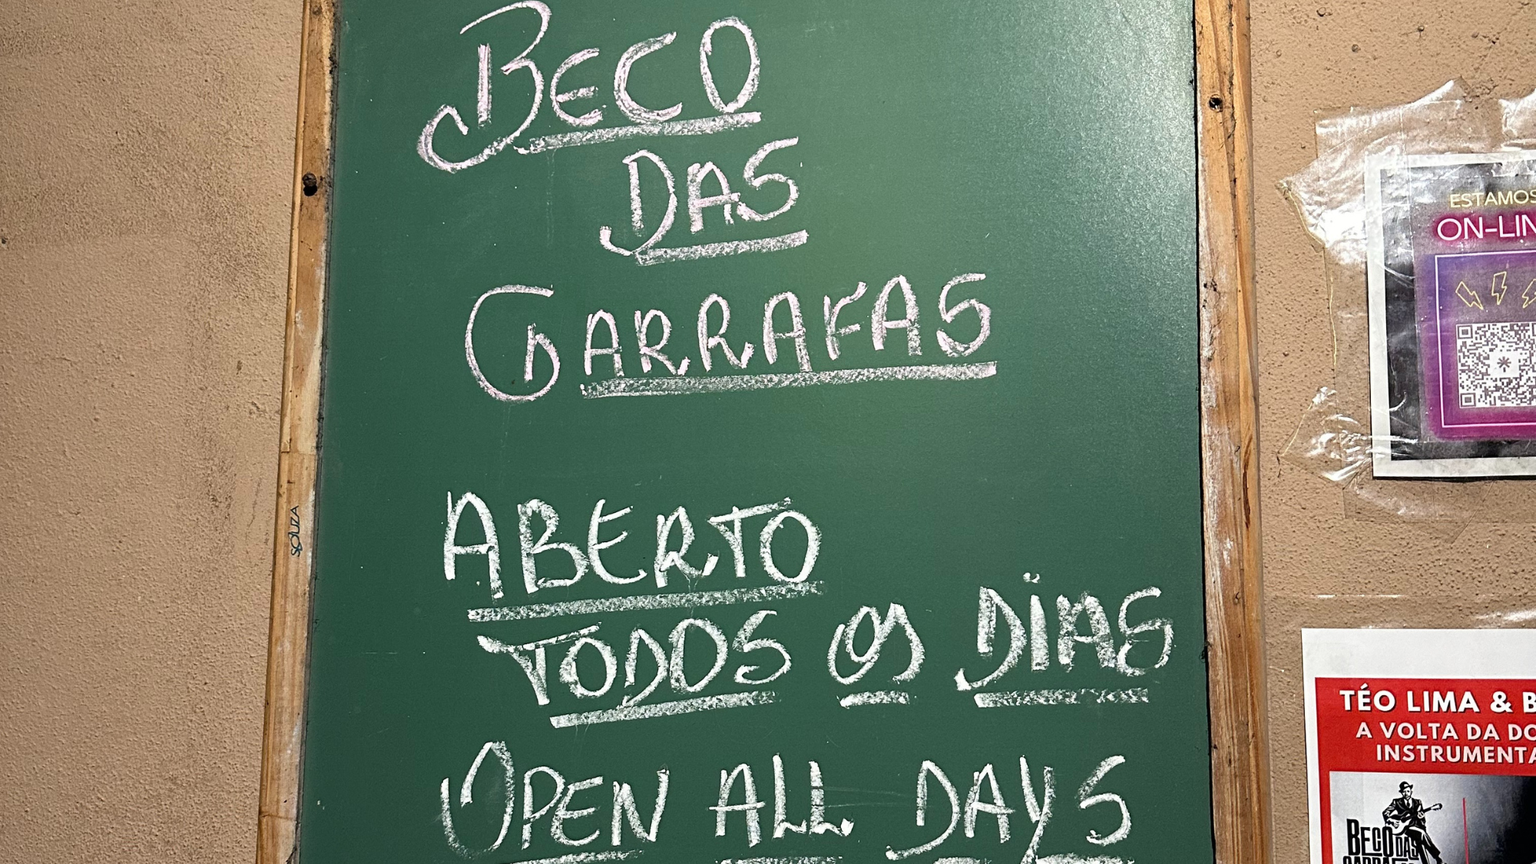 BECO
DAS
GARRAFAS
ABERTO
TODOS OS DIAS
OPEN ALL DAYS
SOUZA
ESTAMOS
TÉO LIMA &
A VOLTA DA
BECO DAS